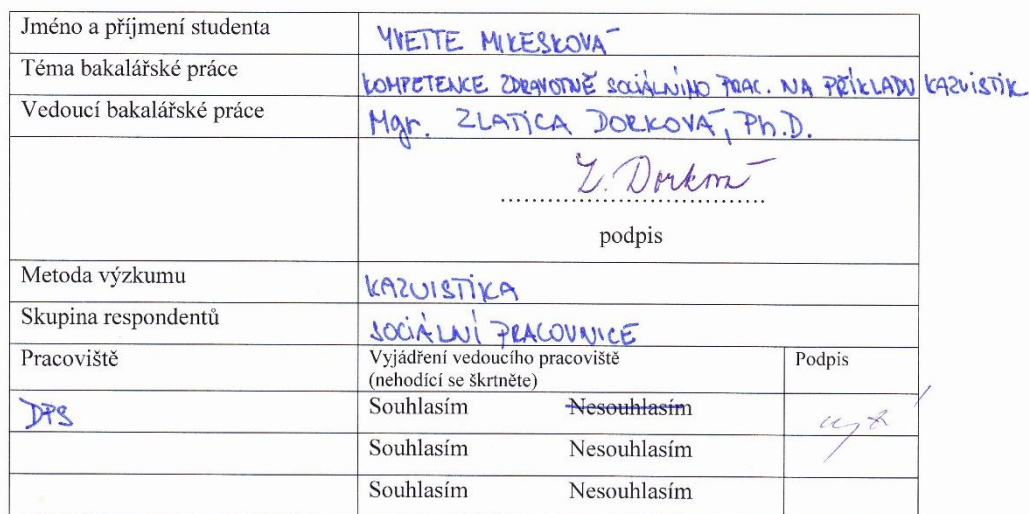 Jméno a příjmení studenta YVETTE MIKESKOVÁ
Téma bakalářské práce KOMPETENCE ZDRAVOTNĚ SOCIÁLNÍHO PRAC. NA PŘÍKLADU KAZUISTIK
Vedoucí bakalářské práce Mgr. ZLATICA DORKOVÁ, Ph.D.
Z. Dorková
podpis
Metoda výzkumu KAZUISTIKA
Skupina respondentů SOCIÁLNÍ PRACOVNICE
Pracoviště Vyjádření vedoucího pracoviště Podpis
(nehodící se škrtněte)
DPS Souhlasím Nesouhlasím
Souhlasím Nesouhlasím
Souhlasím Nesouhlasím